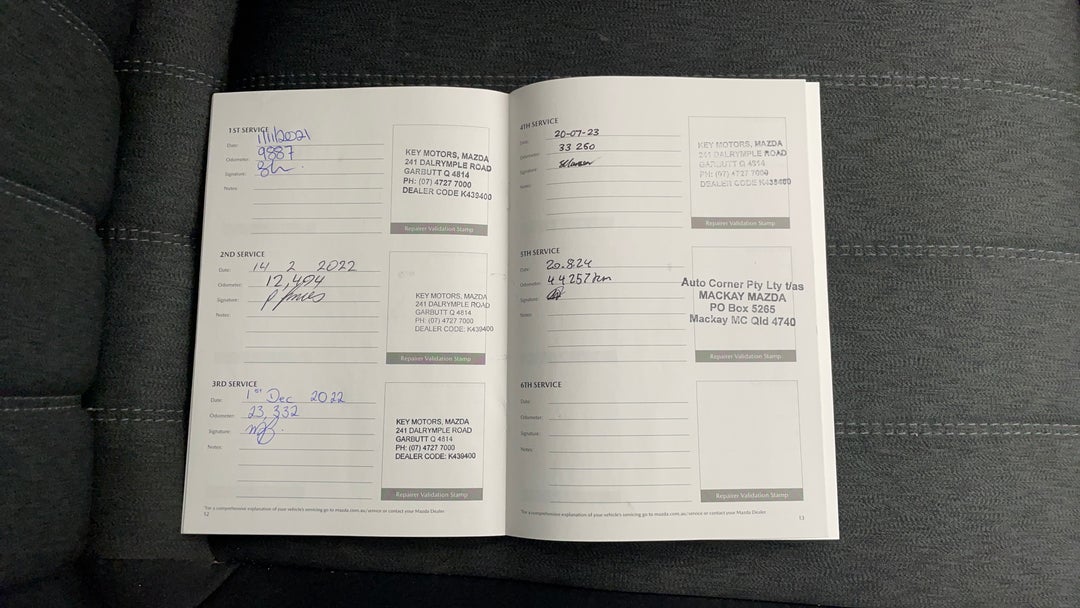 1ST SERVICE
Date: 1/11/2021
Odometer: 9887
Signature:
Notes:
KEY MOTORS, MAZDA
241 DALRYMPLE ROAD
GARBUTT Q 4814
PH: (07) 4727 7000
DEALER CODE K439400
Repairer Validation Stamp
2ND SERVICE
Date: 14 2 2022
Odometer: 12,494
Signature:
Notes:
KEY MOTORS, MAZDA
241 DALRYMPLE ROAD
GARBUTT Q 4814
PH: (07) 4727 7000
DEALER CODE: K439400
Repairer Validation Stamp
3RD SERVICE
Date: 1st Dec 2022
Odometer: 23,332
Signature:
Notes:
KEY MOTORS, MAZDA
241 DALRYMPLE ROAD
GARBUTT Q 4814
PH: (07) 4727 7000
DEALER CODE: K439400
Repairer Validation Stamp
*For a comprehensive explanation of your vehicle's servicing go to mazda.com.au/service or contact your Mazda Dealer
12
4TH SERVICE
Date: 20-07-23
Odometer: 33 250
Signature:
Notes:
KEY MOTORS, MAZDA
241 DALRYMPLE ROAD
GARBUTT Q 4814
PH: (07) 4727 7000
DEALER CODE K439400
Repairer Validation Stamp
5TH SERVICE
Date: 20.8.24
Odometer: 44257km
Signature:
Notes:
Auto Corner Pty Lty t/as
MACKAY MAZDA
PO Box 5265
Mackay MC Qld 4740
Repairer Validation Stamp
6TH SERVICE
Date:
Odometer:
Signature:
Notes:
Repairer Validation Stamp
*For a comprehensive explanation of your vehicle's servicing go to mazda.com.au/service or contact your Mazda Dealer
13